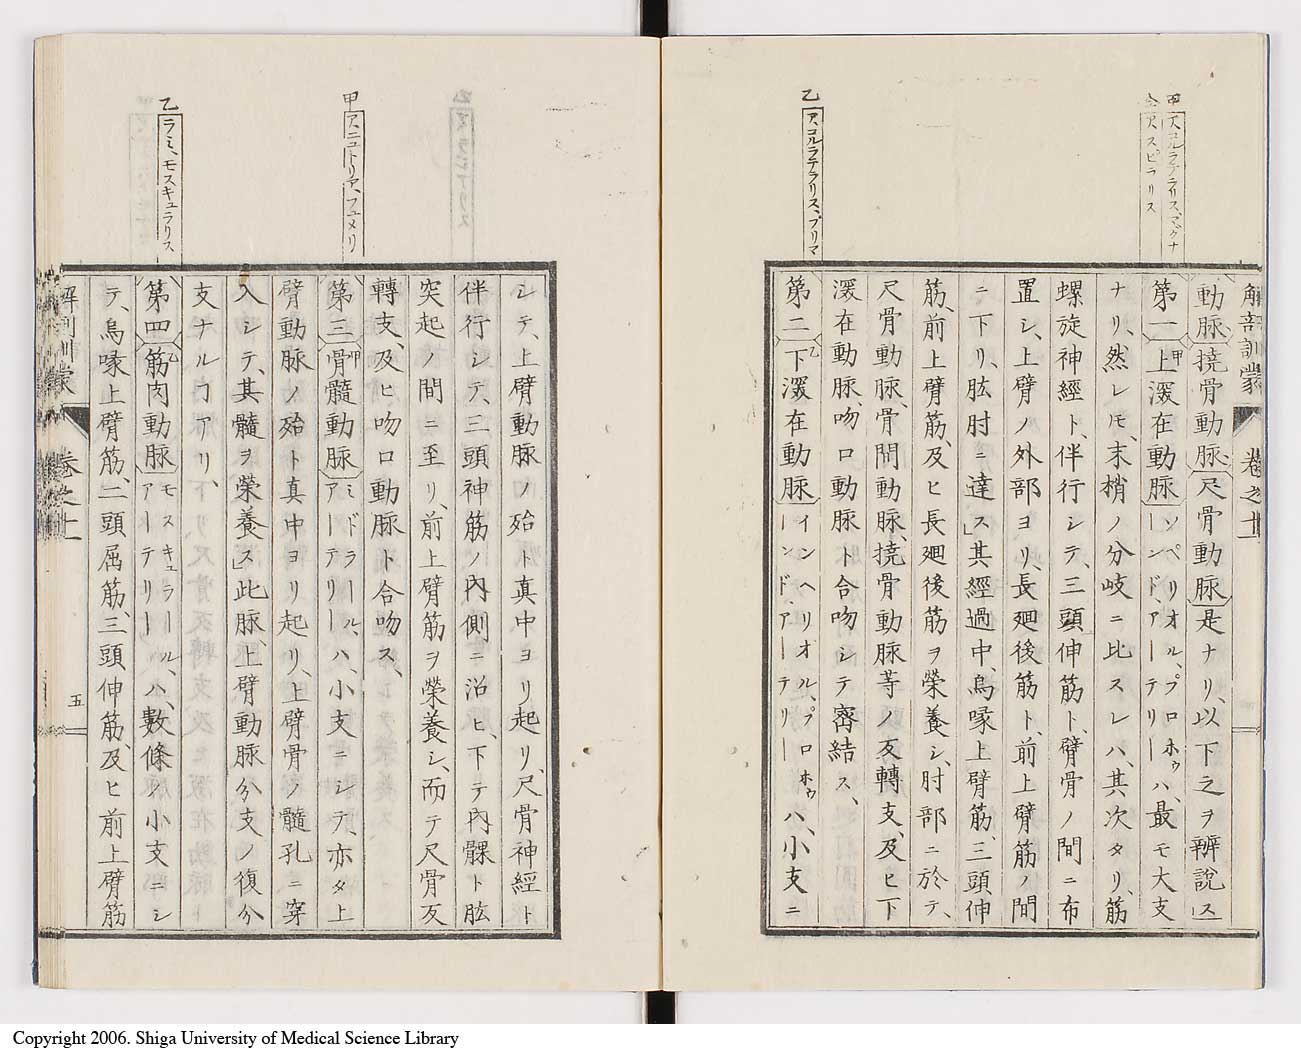 甲 ア、コルラテラリス、マグナ
仝 ア、スピラリス
乙 ア、コルラテラリス、プリマ
解剖訓蒙 卷之十
動脈、撓骨動脈、尺骨動脈是ナリ、以下之ヲ辨說ス
第一 甲上深在動脈 ソペリオル、プロホゥンド、アーテリー ハ、最モ大支
ナリ、然レモ、末梢ノ分岐ニ比スレハ、其次タリ、筋
螺旋神經ト、伴行シテ、三頭伸筋ト、臂骨ノ間ニ布
置シ、上臂ノ外部ヨリ、長廻後筋ト、前上臂筋ノ間
ニ下リ、肱肘ニ達ス」其經過中、烏喙上臂筋、三頭伸
筋、前上臂筋、及ヒ長廻後筋ヲ榮養シ、肘部ニ於テ、
尺骨動脈、骨間動脈、撓骨動脈等ノ反轉支、及ヒ下
深在動脈、吻口動脈ト合吻シテ密結ス、
第二 乙下深在動脈 インヘリオル、プロホゥンド、アーテリー ハ、小支ニ
シテ、上臂動脈ノ殆ト真中ヨリ起リ、尺骨神經ト
伴行シテ、三頭神筋ノ內側ニ沿ヒ、下テ內髁ト肱
突起ノ間ニ至リ、前上臂筋ヲ榮養シ、而テ尺骨反
轉支、及ヒ吻口動脈ト合吻ス、
甲 ア、ニュトリア、フュメリ
第三 甲骨髓動脈 ミドラール、アーテリー ハ、小支ニシテ、亦タ上
臂動脈ノ殆ト真中ヨリ起リ、上臂骨ノ髓孔ニ穿
入シテ、其髓ヲ榮養ス」此脈、上臂動脈分支ノ復分
支ナルヿアリ、
乙 ラミ、モスキュラリス
第四 乙筋肉動脈 モスキュラール、アーテリー ハ、數條ノ小支ニシ
テ、烏喙上臂筋、二頭屈筋、三頭伸筋、及ヒ前上臂筋
解剖訓蒙 卷之十 五
Copyright 2006. Shiga University of Medical Science Library